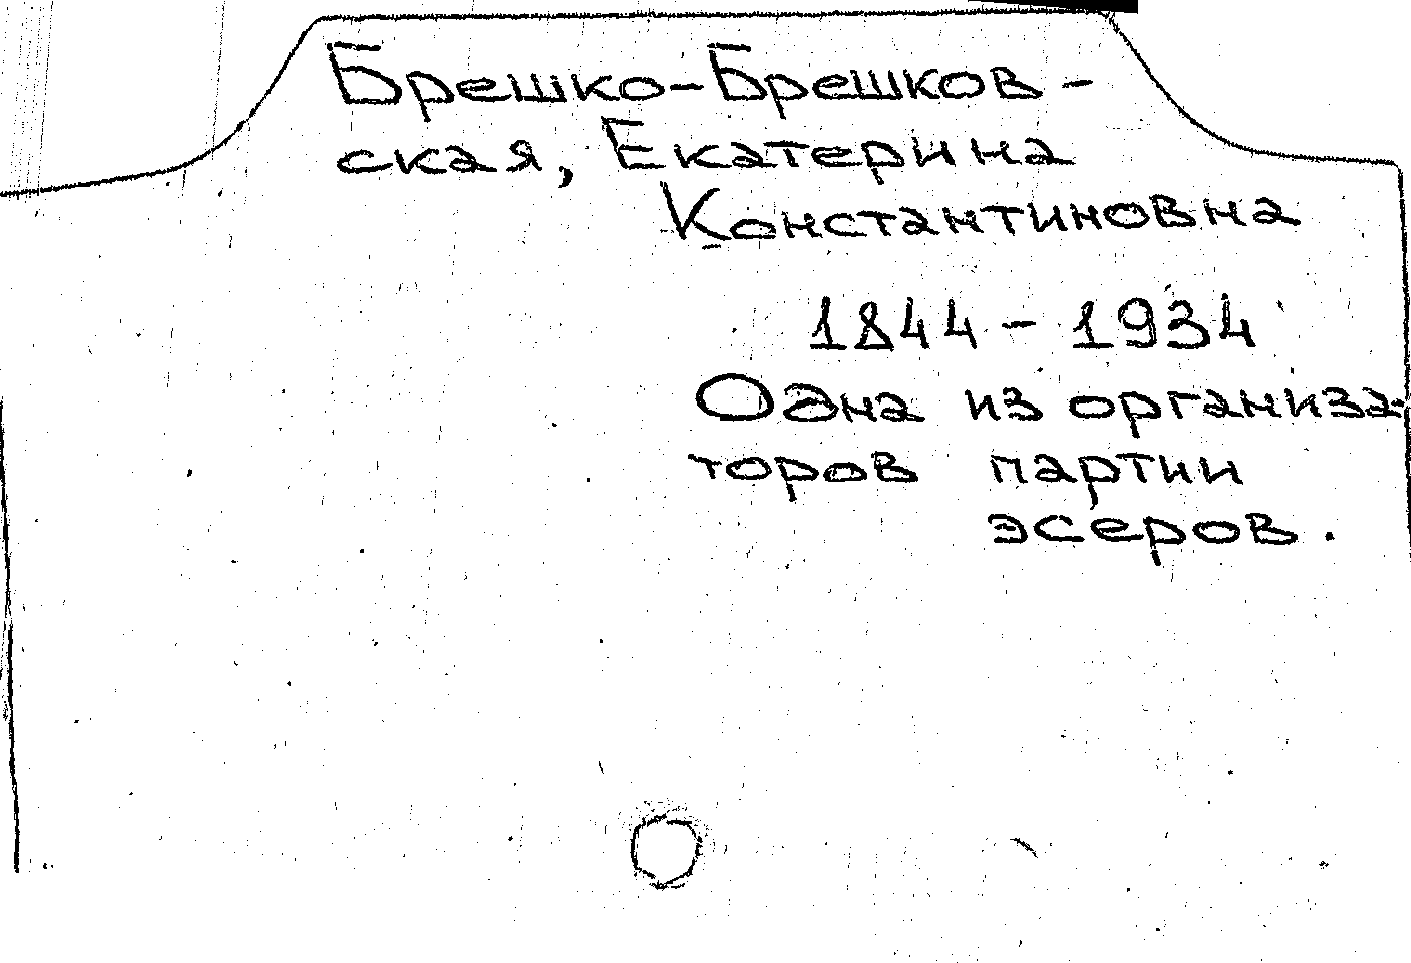 Брешко-Брешков-
ская, Екатерина
Константиновна
1844 - 1934
Одна из организа-
торов партии
эсеров.